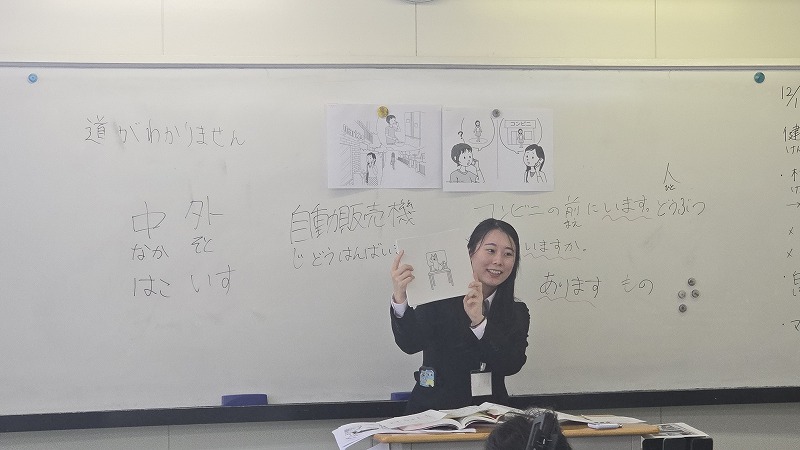 道がわかりません
コンビニ
中 外
なか そと
はこ いす
自動販売機
じどうはんばい
コンビニの前にいます。どうぶつ
人
いますか。
あります もの
12/1